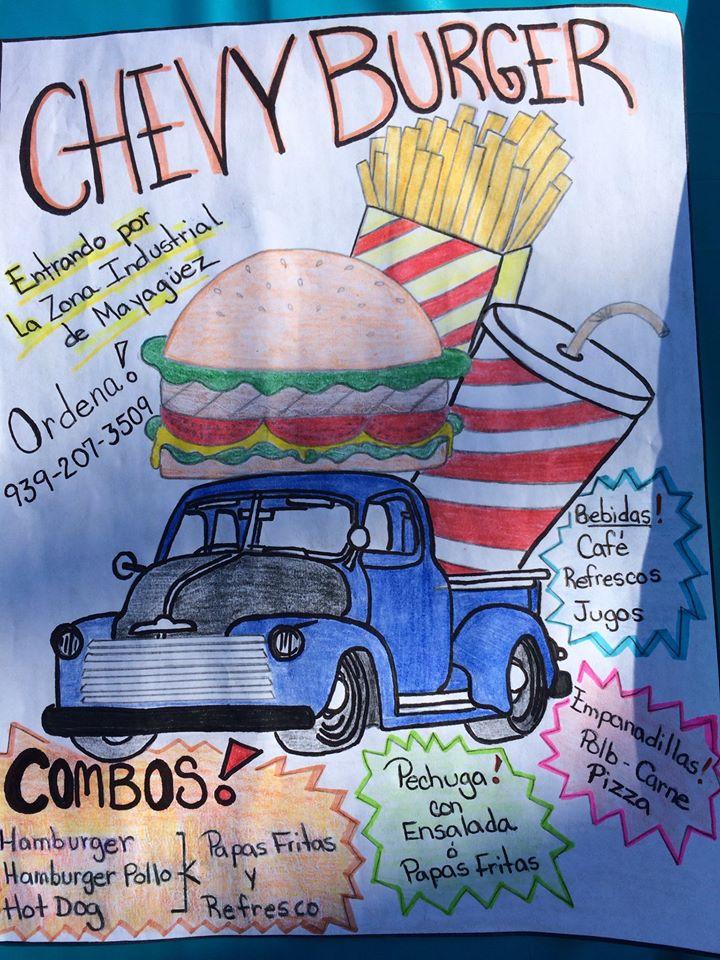 CHEVY BURGER
Entrando por
La Zona Industrial
de Mayagüez
Ordena!
939-207-3509
Bebidas!
Café
Refrescos
Jugos
Empanadillas!
Pollo - Carne
Pizza
COMBOS!
Hamburger
Hamburger Pollo
Hot Dog
Papas Fritas
y
Refresco
Pechuga!
con
Ensalada
ó
Papas Fritas